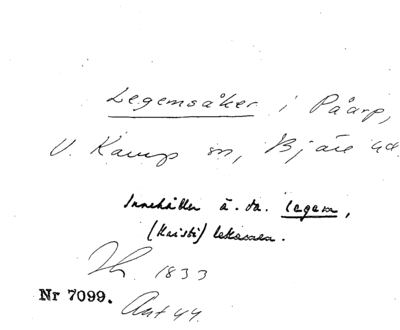 Legemsåker i Påarp,
V. Karup sn, Bjäre hd.
Innehåller ä. da. legem,
(Kristi) lekamen.
1833
Nr 7099.
Ant 44.